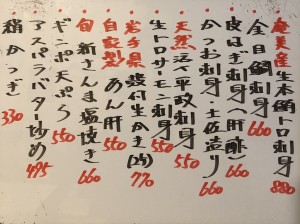 奄美産生本鮪トロ刺身 880
金目鯛刺身 660
皮はぎ刺身(肝酢) 660
かつお刺身・土佐造り 660
天然活〆平政刺身 550
生トロサーモン刺身 550
岩手県殻付生かき(2ヶ) 770
自家製あん肝 550
旬新さんま塩焼き 660
ギンポ天ぷら 550
アスパラバター炒め 495
稍かつぎ 330